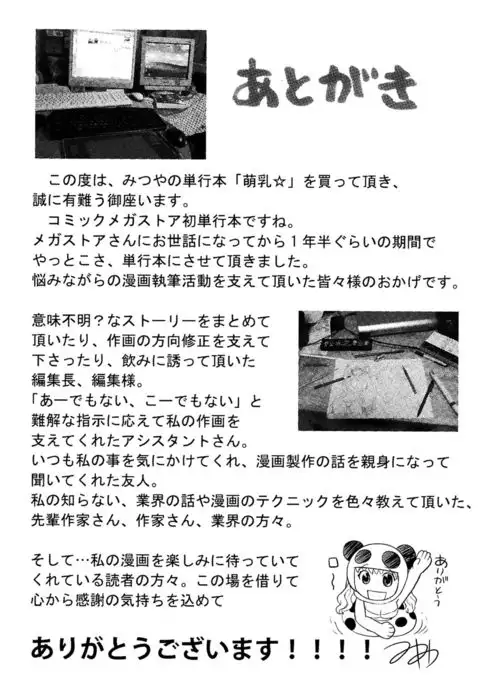 あとがき
この度は、みつやの単行本「萌乳☆」を買って頂き、
誠に有難う御座います。
コミックメガストア初単行本ですね。
メガストアさんにお世話になってから１年半ぐらいの期間で
やっとこさ、単行本にさせて頂きました。
悩みながらの漫画執筆活動を支えて頂いた皆々様のおかげです。
意味不明？なストーリーをまとめて
頂いたり、作画の方向修正を支えて
下さったり、飲みに誘って頂いた
編集長、編集様。
「あーでもない、こーでもない」と
難解な指示に応えて私の作画を
支えてくれたアシスタントさん。
いつも私の事を気にかけてくれ、漫画製作の話を親身になって
聞いてくれた友人。
私の知らない、業界の話や漫画のテクニックを色々教えて頂いた、
先輩作家さん、作家さん、業界の方々。
そして…私の漫画を楽しみに待っていて
くれている読者の方々。この場を借りて
心から感謝の気持ちを込めて
ありがとうございます！！！！
ありがとう